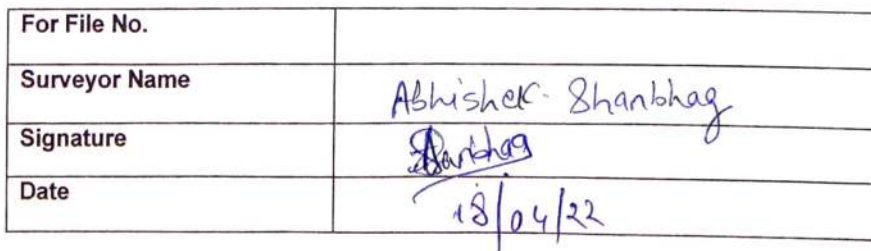 For File No.
Surveyor Name Abhishek Shanbhag
Signature Shanbhag
Date 18/04/22